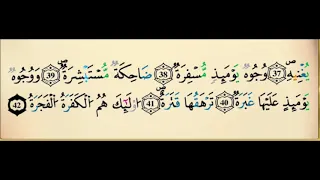 يُغْنِيهِ ۝37 وُجُوهٌ يَوْمَئِذٍ مُّسْفِرَةٌ ۝38 ضَاحِكَةٌ مُّسْتَبْشِرَةٌ ۝39 وَوُجُوهٌ
يَوْمَئِذٍ عَلَيْهَا غَبَرَةٌ ۝40 تَرْهَقُهَا قَتَرَةٌ ۝41 أُولَٰئِكَ هُمُ الْكَفَرَةُ الْفَجَرَةُ ۝42